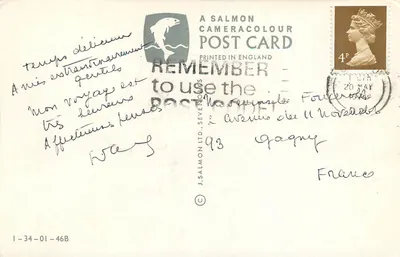 temps délicieux
Amis extraordinairement
gentils
Mon voyage est
très heureux
Affectueuses pensées
A SALMON
CAMERACOLOUR
POST CARD
PRINTED IN ENGLAND
REMEMBER
to use the
POSTCODE
© J. SALMON LTD., SEVENOAKS
4P
20 MAY
2 avenue du 11 Novembre
93 Gagny
France
1-34-01-46B